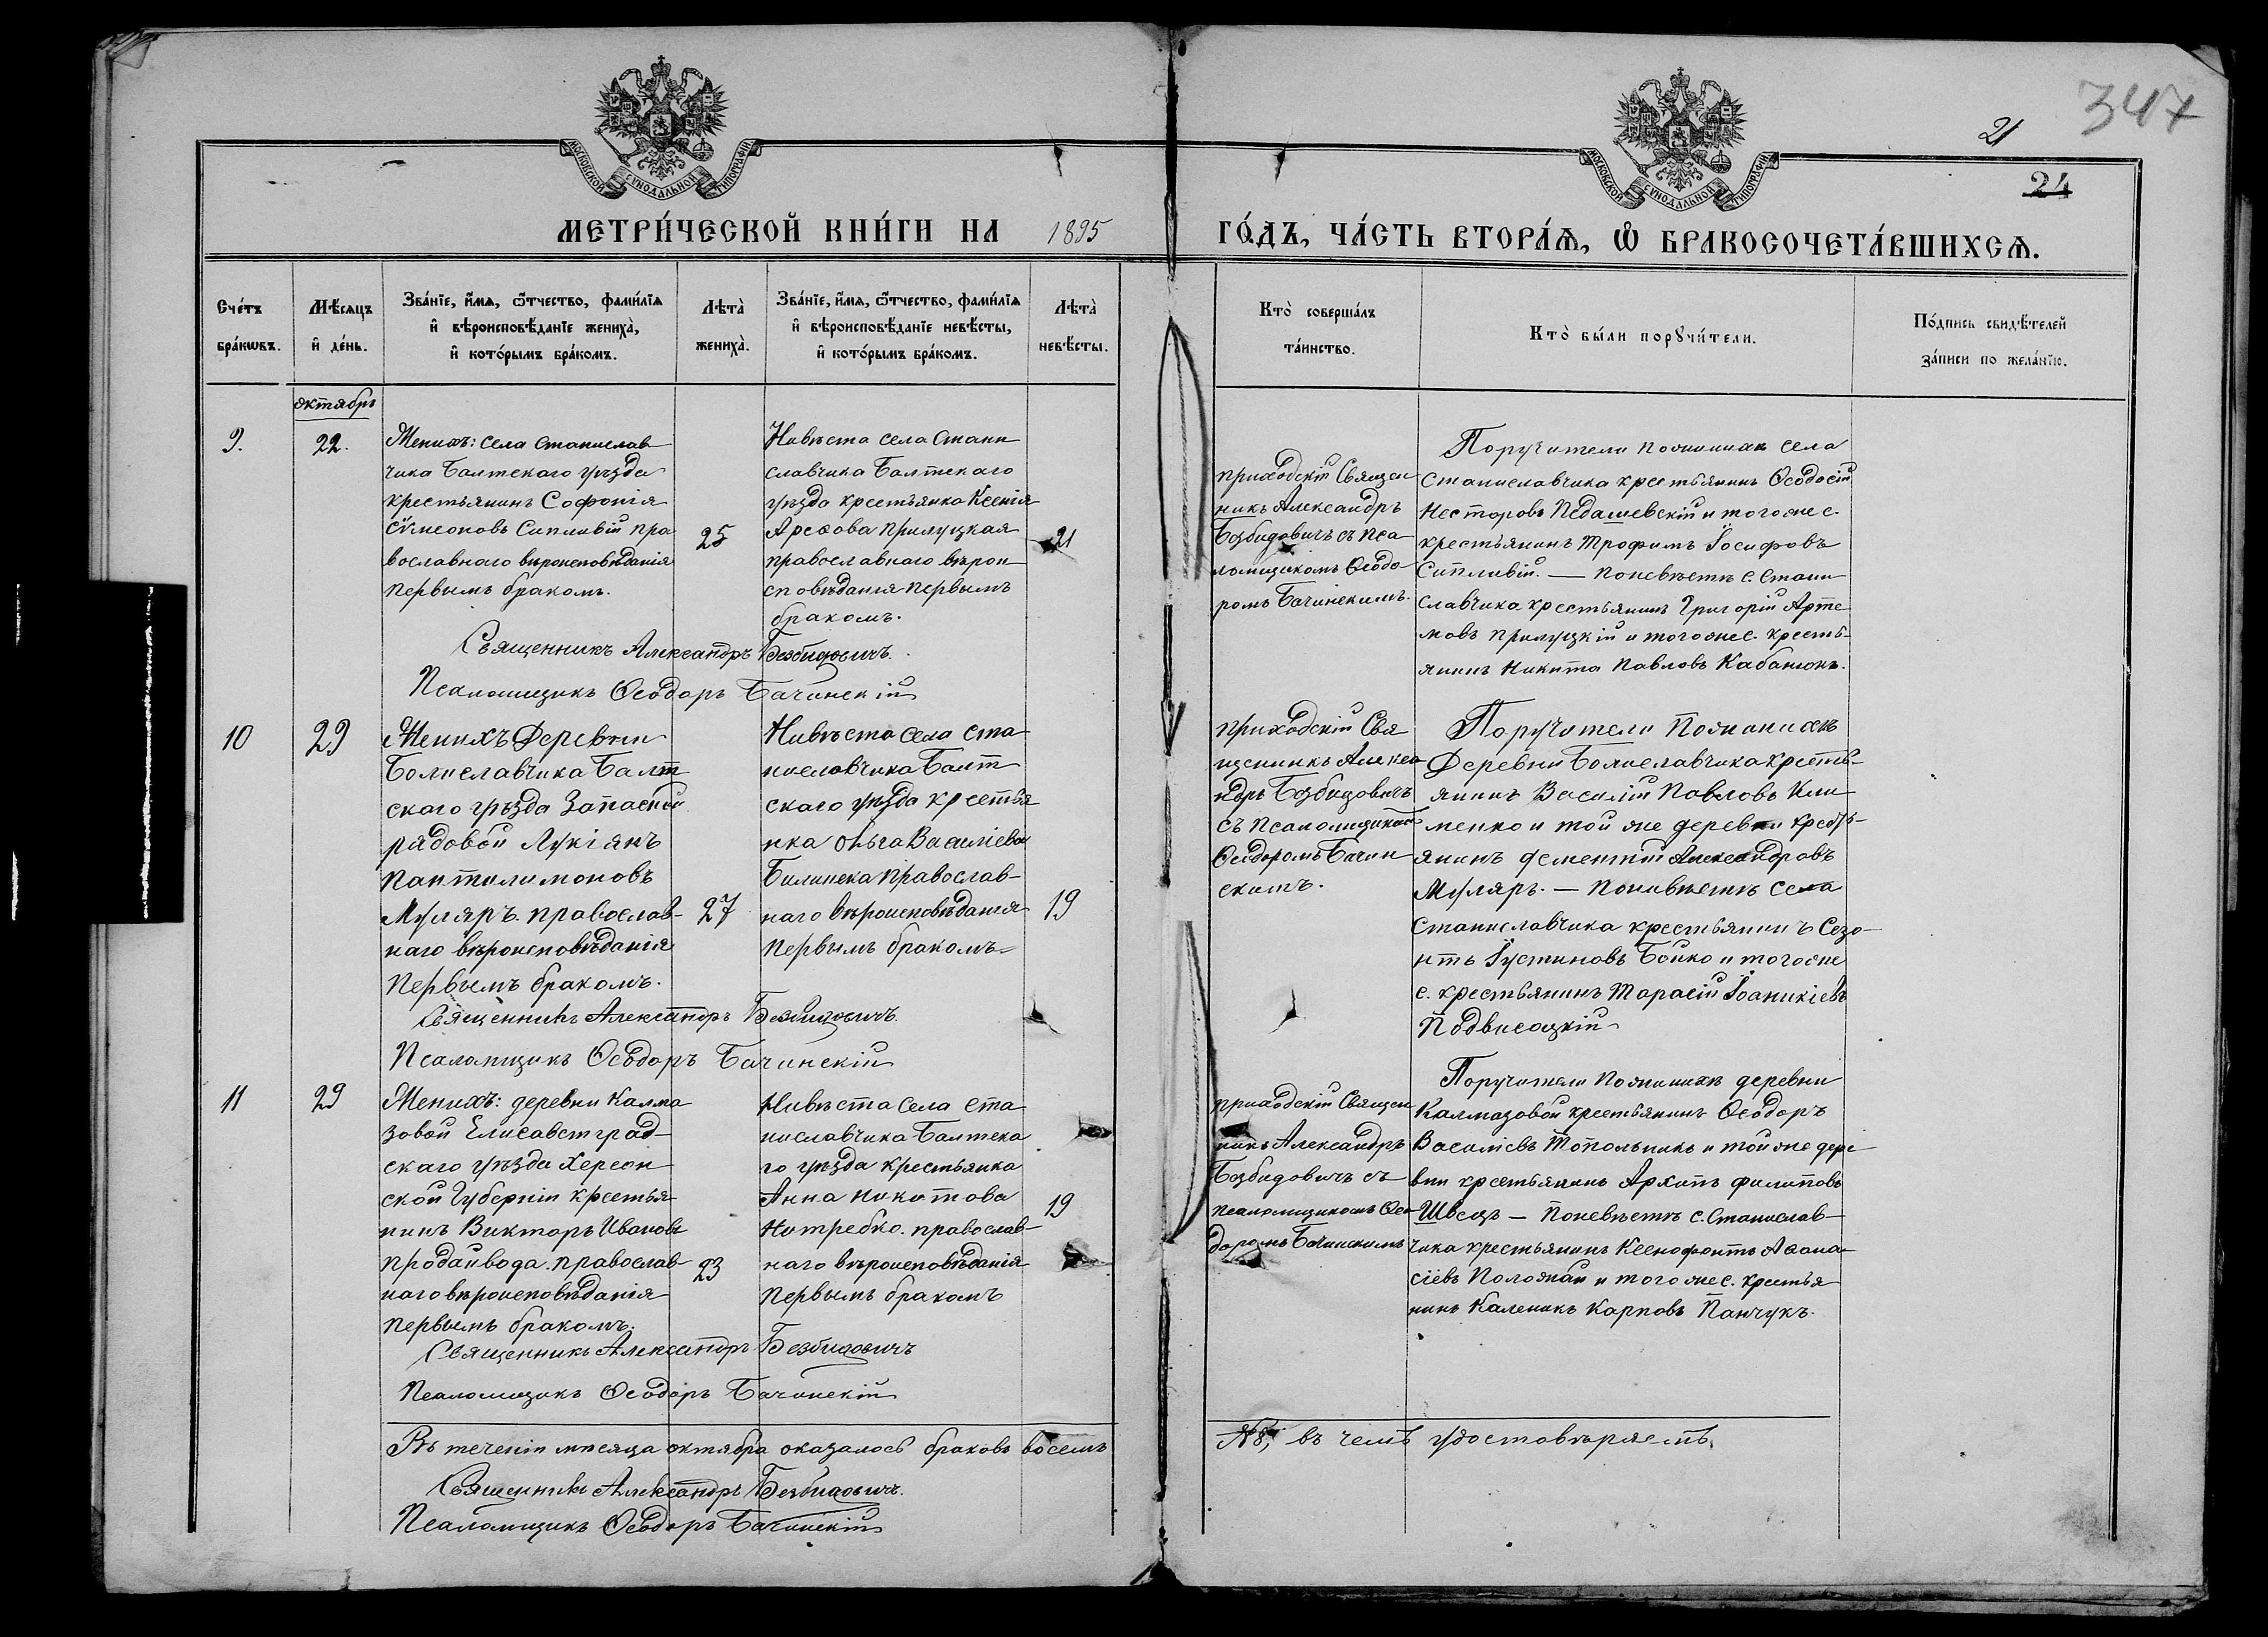 347
21
24
МОСКОВСКОЙ СѴНОДАЛЬНОЙ ТИПОГРАФІИ
МОСКОВСКОЙ СѴНОДАЛЬНОЙ ТИПОГРАФІИ
МЕТРИ́ЧЕСКОЙ КНИ́ГИ НА 1895 ГО́ДЪ, ЧА́СТЬ ВТОРА́Ѧ, Ѡ БРАКОСОЧЕТА́ВШИХСѦ.
Сче́тъ
бра́кѡвъ.
Мѣ́сѧцъ
и де́нь.
Зва́нїе, и́мѧ, ѻ́тчество, фами́лїѧ
и вѣроисповѣ́данїе жениха̀,
и кото́рымъ бра́комъ.
Лѣта̀
жениха̀.
Зва́нїе, и́мѧ, ѻ́тчество, фами́лїѧ
и вѣроисповѣ́данїе невѣ́сты,
и кото́рымъ бра́комъ.
Лѣта̀
невѣ́сты.
Кто̀ соверша́лъ
та́инство.
Кто̀ бы́ли порꙋчи́тели.
По́дпись свидѣ́телей
за́писи по жела́нїю.
октябрь
9.
22.
Женихъ: села Станислав
чика Балтскаго уѣзда
крестьянинъ Софонія
Сѵмеоновъ Сипливій пра
вославнаго вѣроисповѣданія
первымъ бракомъ.
25
Невѣста села Стани
славчика Балтскаго
уѣзда крестьянка Ксенія
Арефова Прилуцкая
православнаго вѣрои
сповѣданія первымъ
бракомъ.
21
Священникъ Александръ Безбидовичъ.
Псаломщикъ Ѳеодоръ Бачинскій
приходскій Священ
никъ Александръ
Безбидовичъ съ пса
ломщикомъ Ѳеодо
ромъ Бачинскимъ.
Поручители по женихѣ села
Станиславчика крестьянинъ Ѳеодосій
Несторовъ Педашевскій и того же с.
крестьянинъ Трофимъ Іосифовъ
Сипливій. — По невѣстѣ с. Стани
славчика крестьянинъ Григорій Арте
мовъ Прилуцкій и того же с. кресть-
янинъ Никита Павловъ Кабанюкъ.
10
29
Женихъ Деревни
Болиславчика Балт
скаго уѣзда Запасной
рядовой Лукіянъ
Пантилимоновъ
Муляръ. православ-
наго вѣроисповѣданія
Первымъ бракомъ.
27
Невѣста села Ста-
ниславчика Балт
скаго уѣзда крестья
нка Ольга Василіева
Билинска православ-
наго вѣроисповѣданія
Первымъ бракомъ
19
Священникъ Александръ Безбидовичъ.
Псаломщикъ Ѳеодоръ Бачинскій
приходскій Свя
щенникъ Алекса
ндръ Безбидовичъ
съ псаломщикомъ
Ѳеодоромъ Бачин
скимъ.
Поручители По женихѣ
Деревни Болиславчика кресть-
янинъ Василій Павловъ Кли
менко и той же деревни кресть-
янинъ Дементій Александровъ
Муляръ. — По невѣстѣ села
Станиславчика крестьянинъ Сезо-
нтъ Іустиновъ Бойко и того же
с. крестьянинъ Тарасій Іоаникіевъ
Подвисоцкій
11
29
Женихъ: деревни Калма
зовой Елисаветград-
скаго уѣзда Херсон
ской Губерніи крестья
нинъ Викторъ Ивановъ
Продайвода. православ-
наго вѣроисповѣданія
первымъ бракомъ.
23
Невѣста Села Ста
ниславчика Балтска
го уѣзда крестьянка
Анна Никитова
Нетребко. православ-
наго вѣроисповѣданія
Первымъ бракомъ
19
Священникъ Александръ Безбидовичъ
Псаломщикъ Ѳеодоръ Бачинскій
приходскій Священ
никъ Александръ
Безбидовичъ съ
псаломщикомъ Ѳео
доромъ Бачинскимъ
Поручители По женихѣ деревни
Калмазовой крестьянинъ Ѳеодоръ
Василіевъ Топольникъ и той же дере
вни крестьянинъ Архипъ Филиповъ
Швецъ — По невѣстѣ с. Станислав-
чика крестьянинъ Ксенофонтъ Аѳана-
сіевъ Положай и того же с. крестья
нинъ Каленикъ Карповъ Панчукъ.
Въ теченіи мѣсяца октября оказалось браковъ восемъ № 8, въ чемъ удостовѣряемъ.
Священникъ Александръ Безбидовичъ.
Псаломщикъ Ѳеодоръ Бачинскій